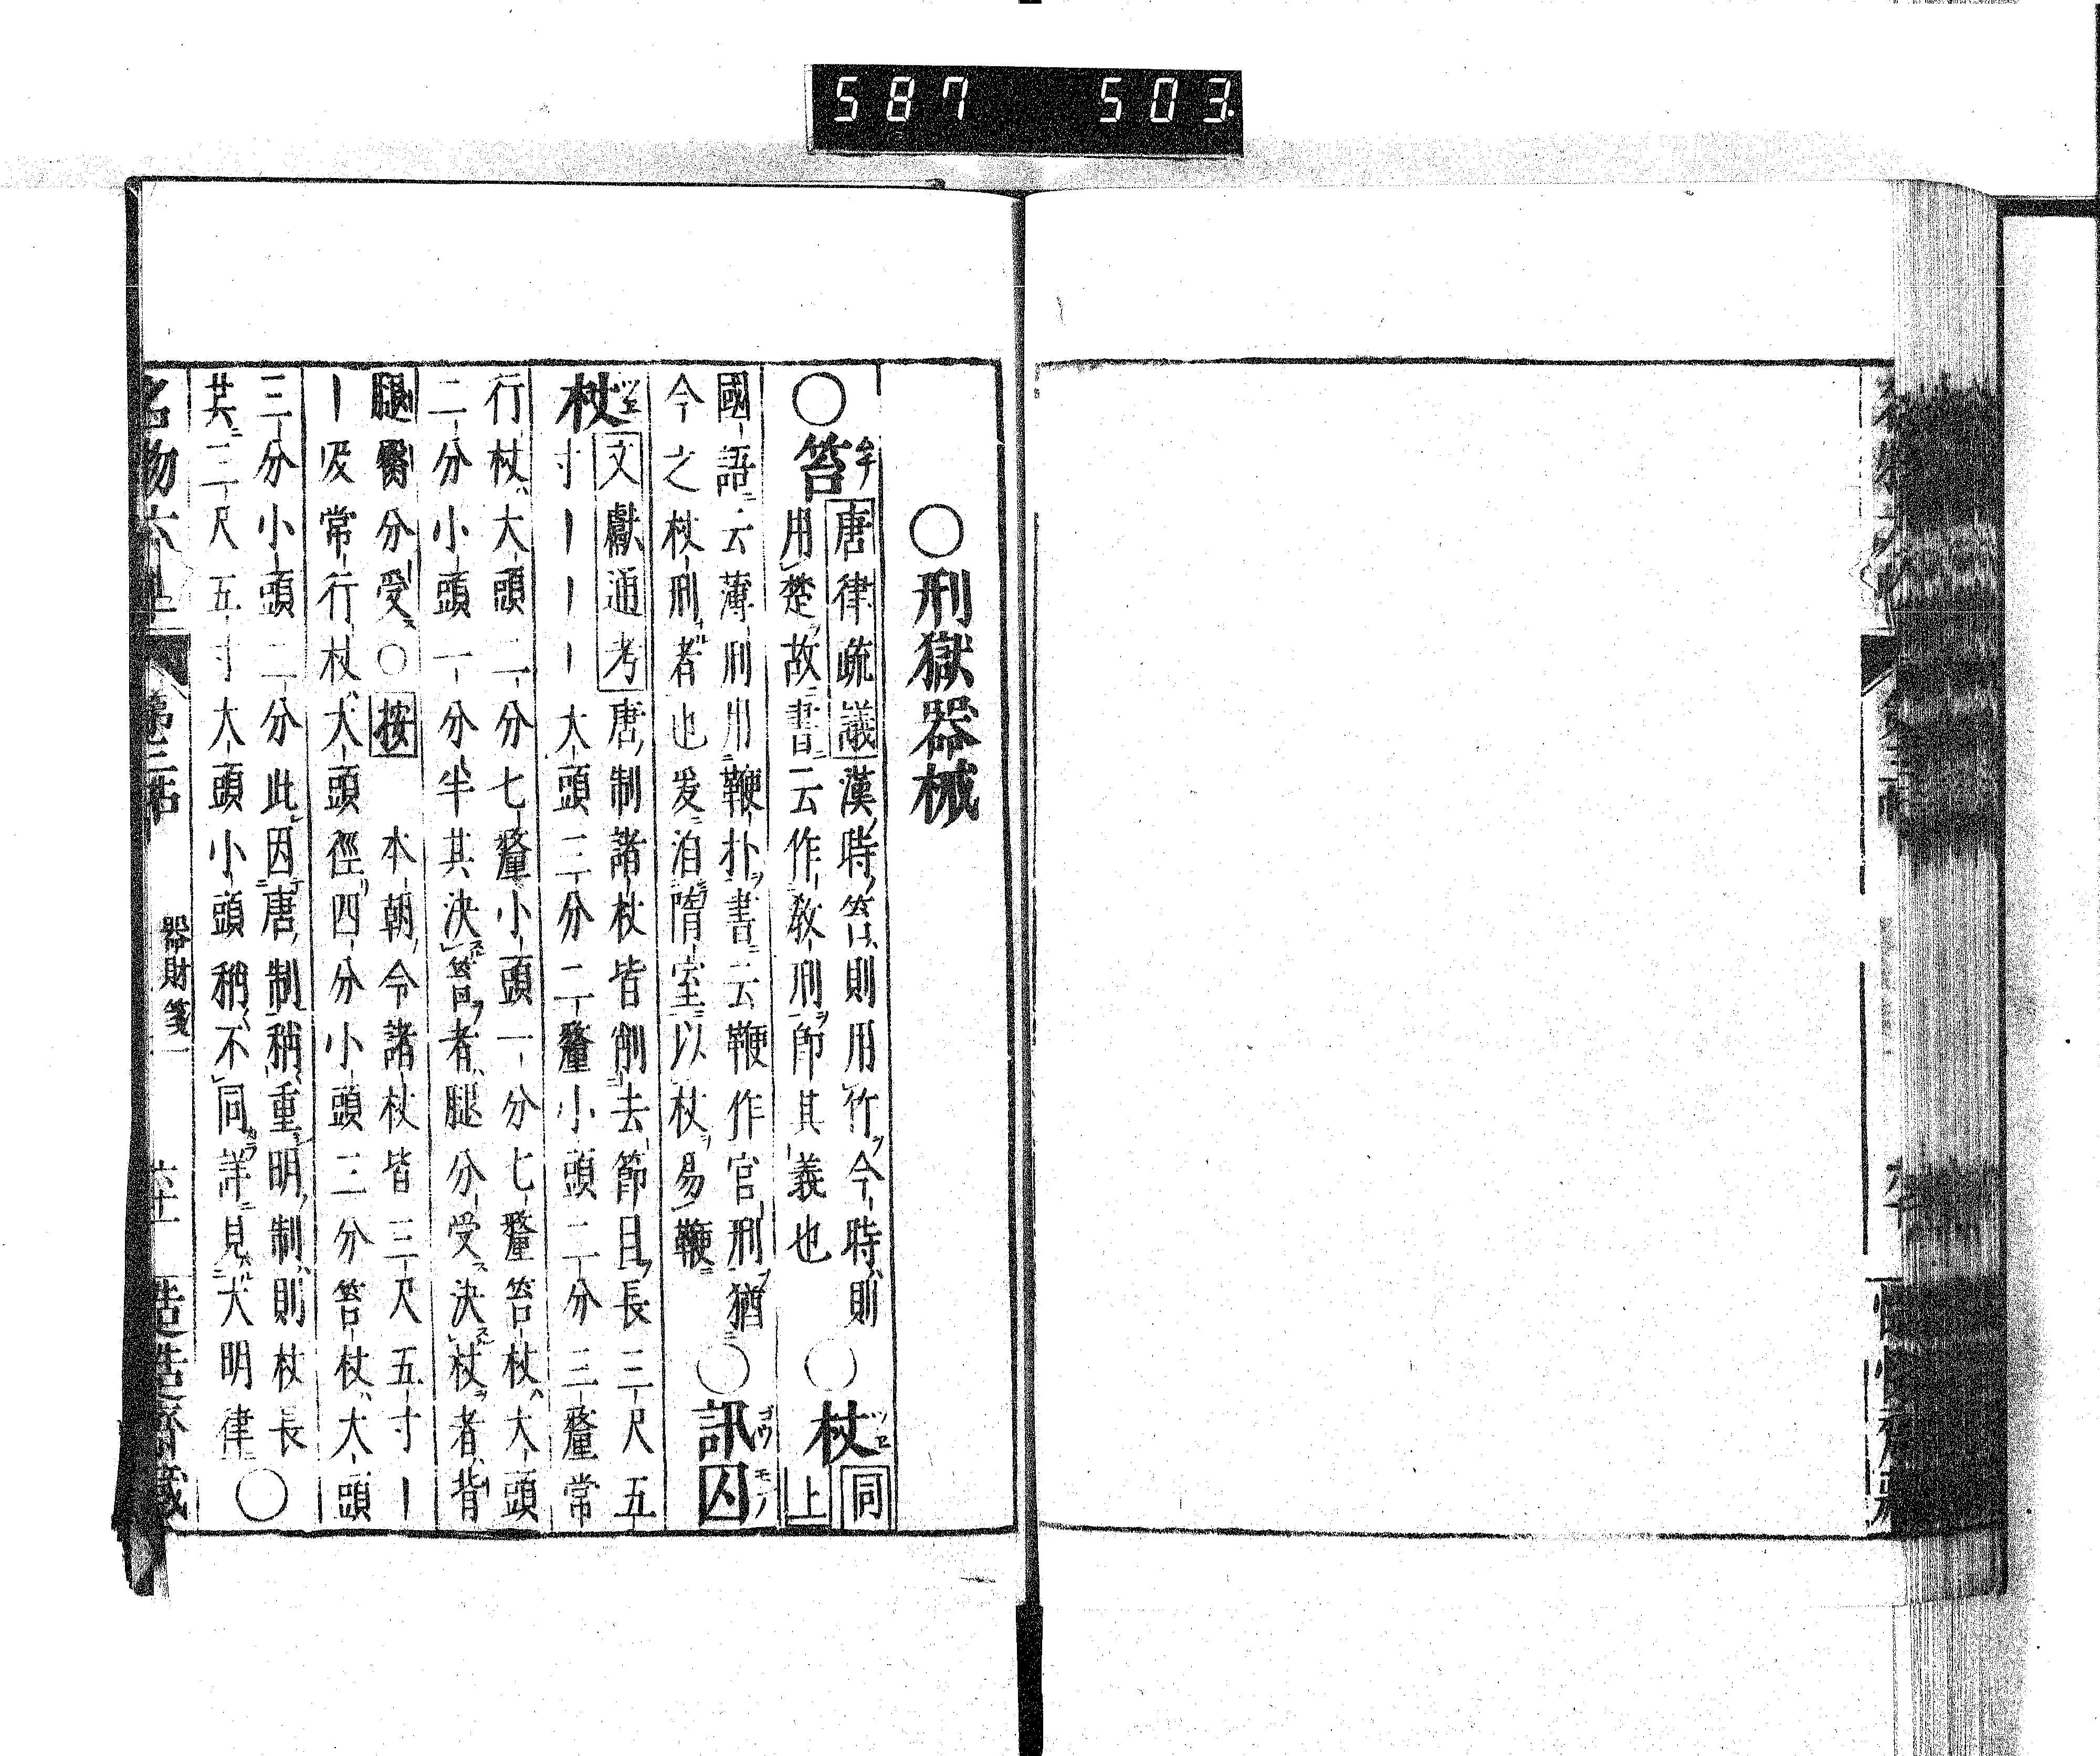 587 503
○刑獄器械
○笞 唐律疏議漢時笞則用竹今時則
用楚故書云作教刑即其義也
○杖 同上
國語云薄刑用鞭扑書云鞭作官刑猶
今之杖刑者也爰洎隋室以杖易鞭
○訊囚
杖 文獻通考唐制諸杖皆削去節目長三尺五
寸｜｜｜大頭三分二釐小頭二分三釐常
行杖大頭二分七釐小頭一分七釐笞杖大頭
二分小頭一分半其決笞者腿分受決杖者背
腿臀分受○按 本朝令諸杖皆三尺五寸｜
｜及常行杖大頭徑四分小頭三分笞杖大頭
三分小頭二分此因唐制稍重明制則杖長
其三尺五寸大頭小頭稍不同詳見大明律○
名物六
第三帖
器財箋
六十一